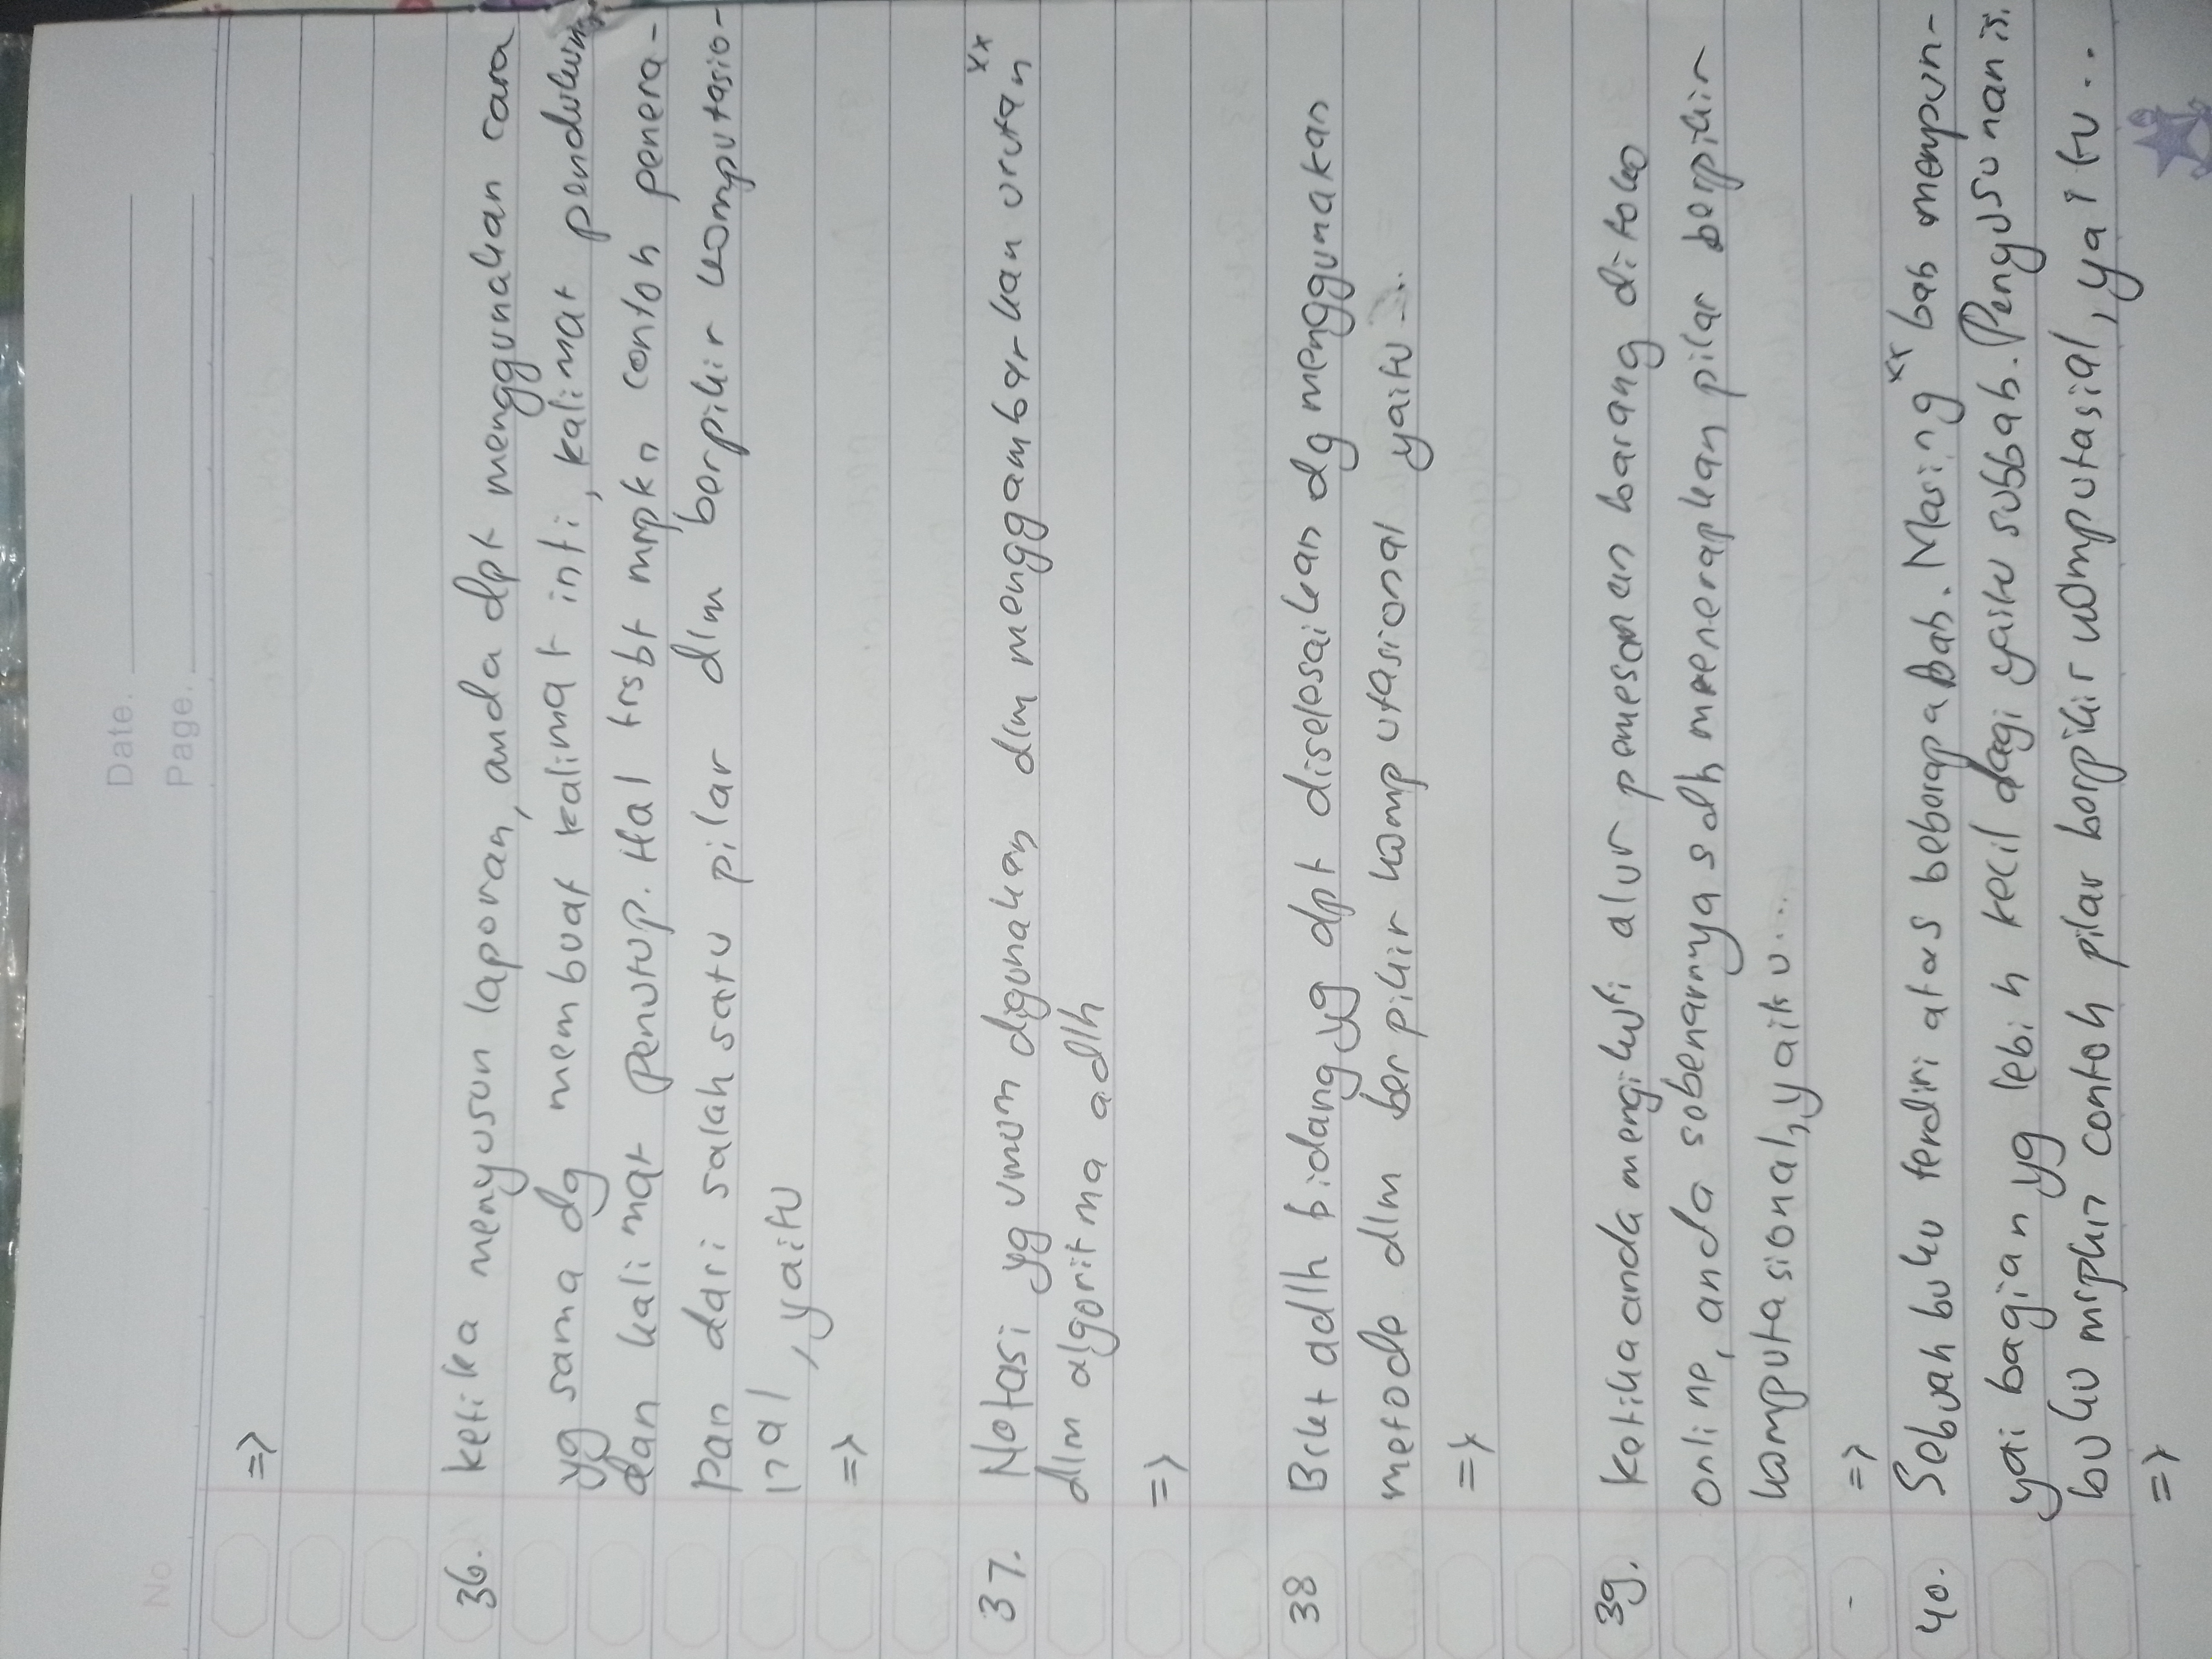 No
Date.
Page.
=>
36. ketika menyusun laporan, anda dpt menggunakan cara
yg sama dg membuat kalimat inti, kalimat pendukung
dan kalimat penutup. Hal trsbt mrpkn contoh penera-
pan dari salah satu pilar dlm berpikir komputasio-
nal, yaitu
=>
37. Notasi yg umum digunakan dlm menggambarkan urutan xx
dlm algoritma adlh
=>
38 Briket adlh bidang yg dpt diselesaikan dg menggunakan
metode dlm berpikir komputasional yaitu ...
=>
39. Ketika anda mengikuti alur pemesanan barang di toko
online, anda sebenarnya sdh menerapkan pilar berpikir
komputasional, yaitu...
=>
40. Sebuah buku terdiri atas beberapa bab. Masing xx bab mempun-
yai bagian yg lebih kecil dagi yaitu subbab. Pengusunan isi
buku mrpkn contoh pilar berpikir komputasial, yaitu...
=>